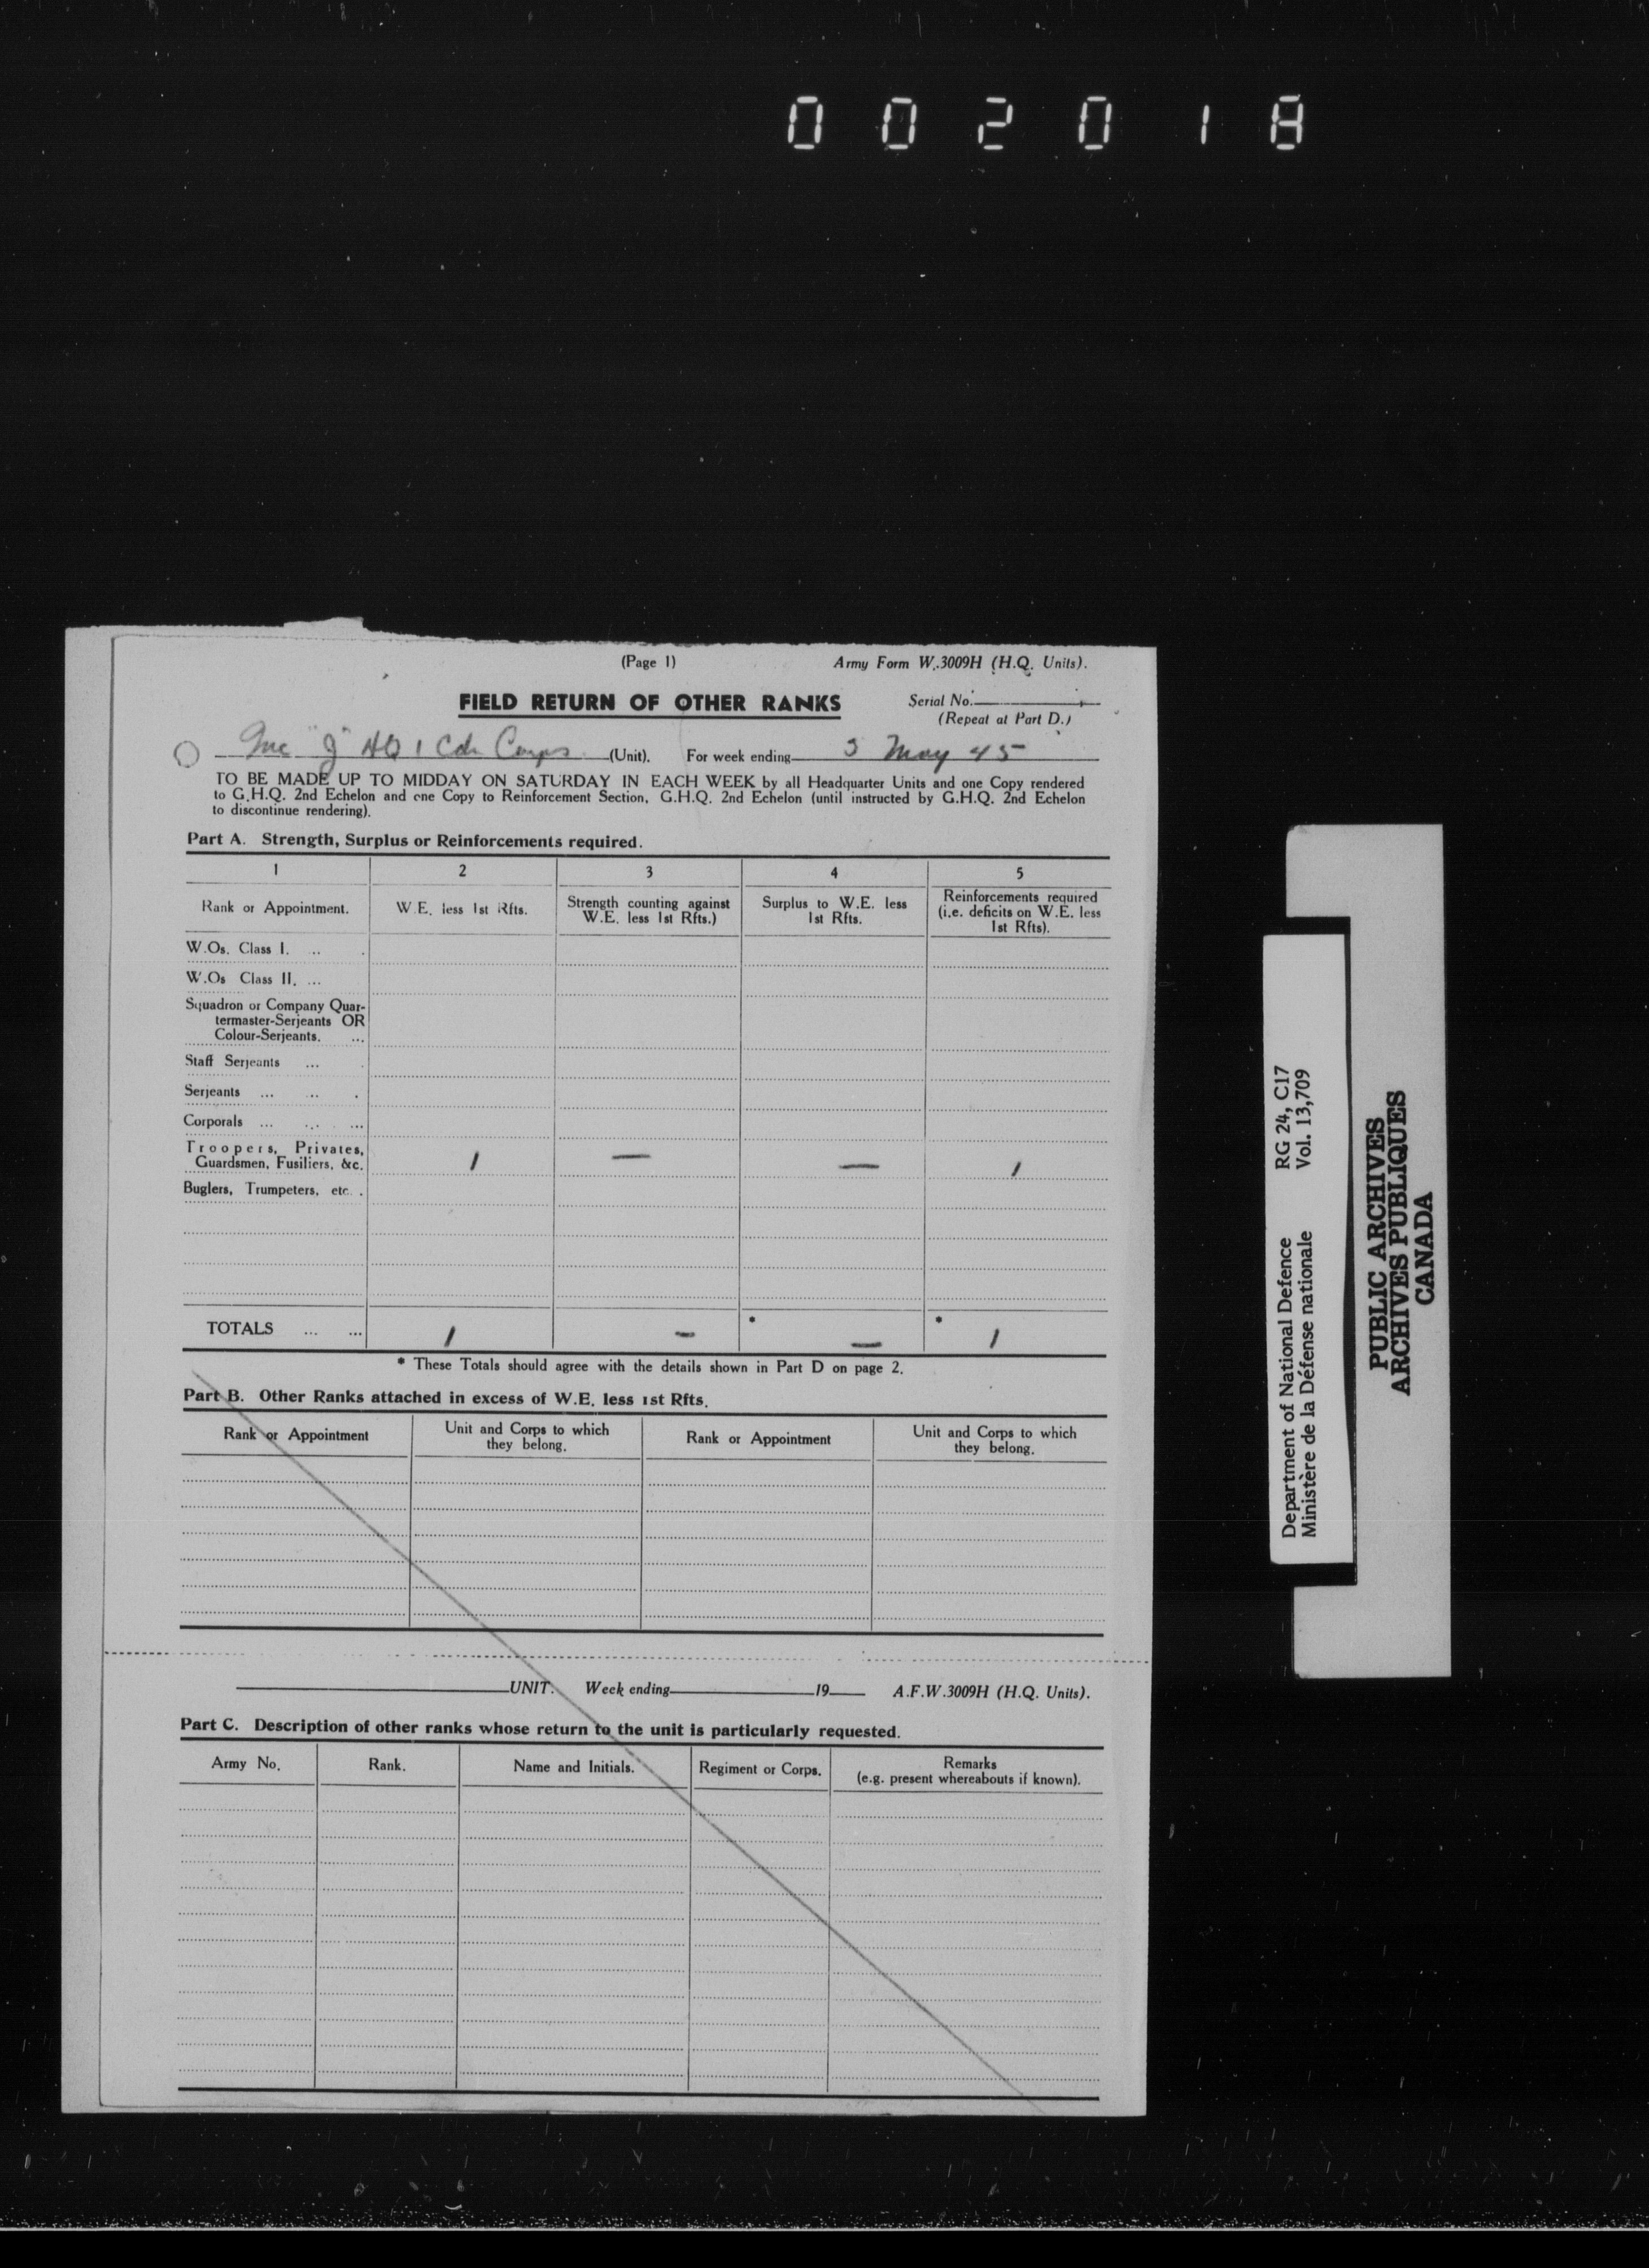 002018
(Page 1)
Army Form W.3009H (H.Q. Units).
FIELD RETURN OF OTHER RANKS
Serial No.
(Repeat at Part D.)
Inc "J" HQ 1 Cdn Corps (Unit). For week ending 5 May 45
TO BE MADE UP TO MIDDAY ON SATURDAY IN EACH WEEK by all Headquarter Units and one Copy rendered
to G.H.Q. 2nd Echelon and one Copy to Reinforcement Section, G.H.Q. 2nd Echelon (until instructed by G.H.Q. 2nd Echelon
to discontinue rendering).
Part A. Strength, Surplus or Reinforcements required.
1 2 3 4 5
Rank or Appointment.
W.E. less 1st Rfts.
Strength counting against
W.E. less 1st Rfts.)
Surplus to W.E. less
1st Rfts.
Reinforcements required
(i.e. deficits on W.E. less
1st Rfts).
W.Os. Class I. ... .
W.Os Class II. ...
Squadron or Company Quar-
termaster-Serjeants OR
Colour-Serjeants. ...
Staff Serjeants ... .
Serjeants ... ... .
Corporals ... ... ...
Troopers, Privates,
Guardsmen, Fusiliers, &c. 1 — — 1
Buglers, Trumpeters, etc. .
TOTALS ... ... 1 — * — * 1
* These Totals should agree with the details shown in Part D on page 2.
Part B. Other Ranks attached in excess of W.E. less 1st Rfts.
Rank or Appointment
Unit and Corps to which
they belong.
Rank or Appointment
Unit and Corps to which
they belong.
UNIT. Week ending 19 A.F.W.3009H (H.Q. Units).
Part C. Description of other ranks whose return to the unit is particularly requested.
Army No.
Rank.
Name and Initials.
Regiment or Corps.
Remarks
(e.g. present whereabouts if known).
Department of National Defence RG 24, C17
Ministère de la Défense nationale Vol. 13,709
PUBLIC ARCHIVES
ARCHIVES PUBLIQUES
CANADA